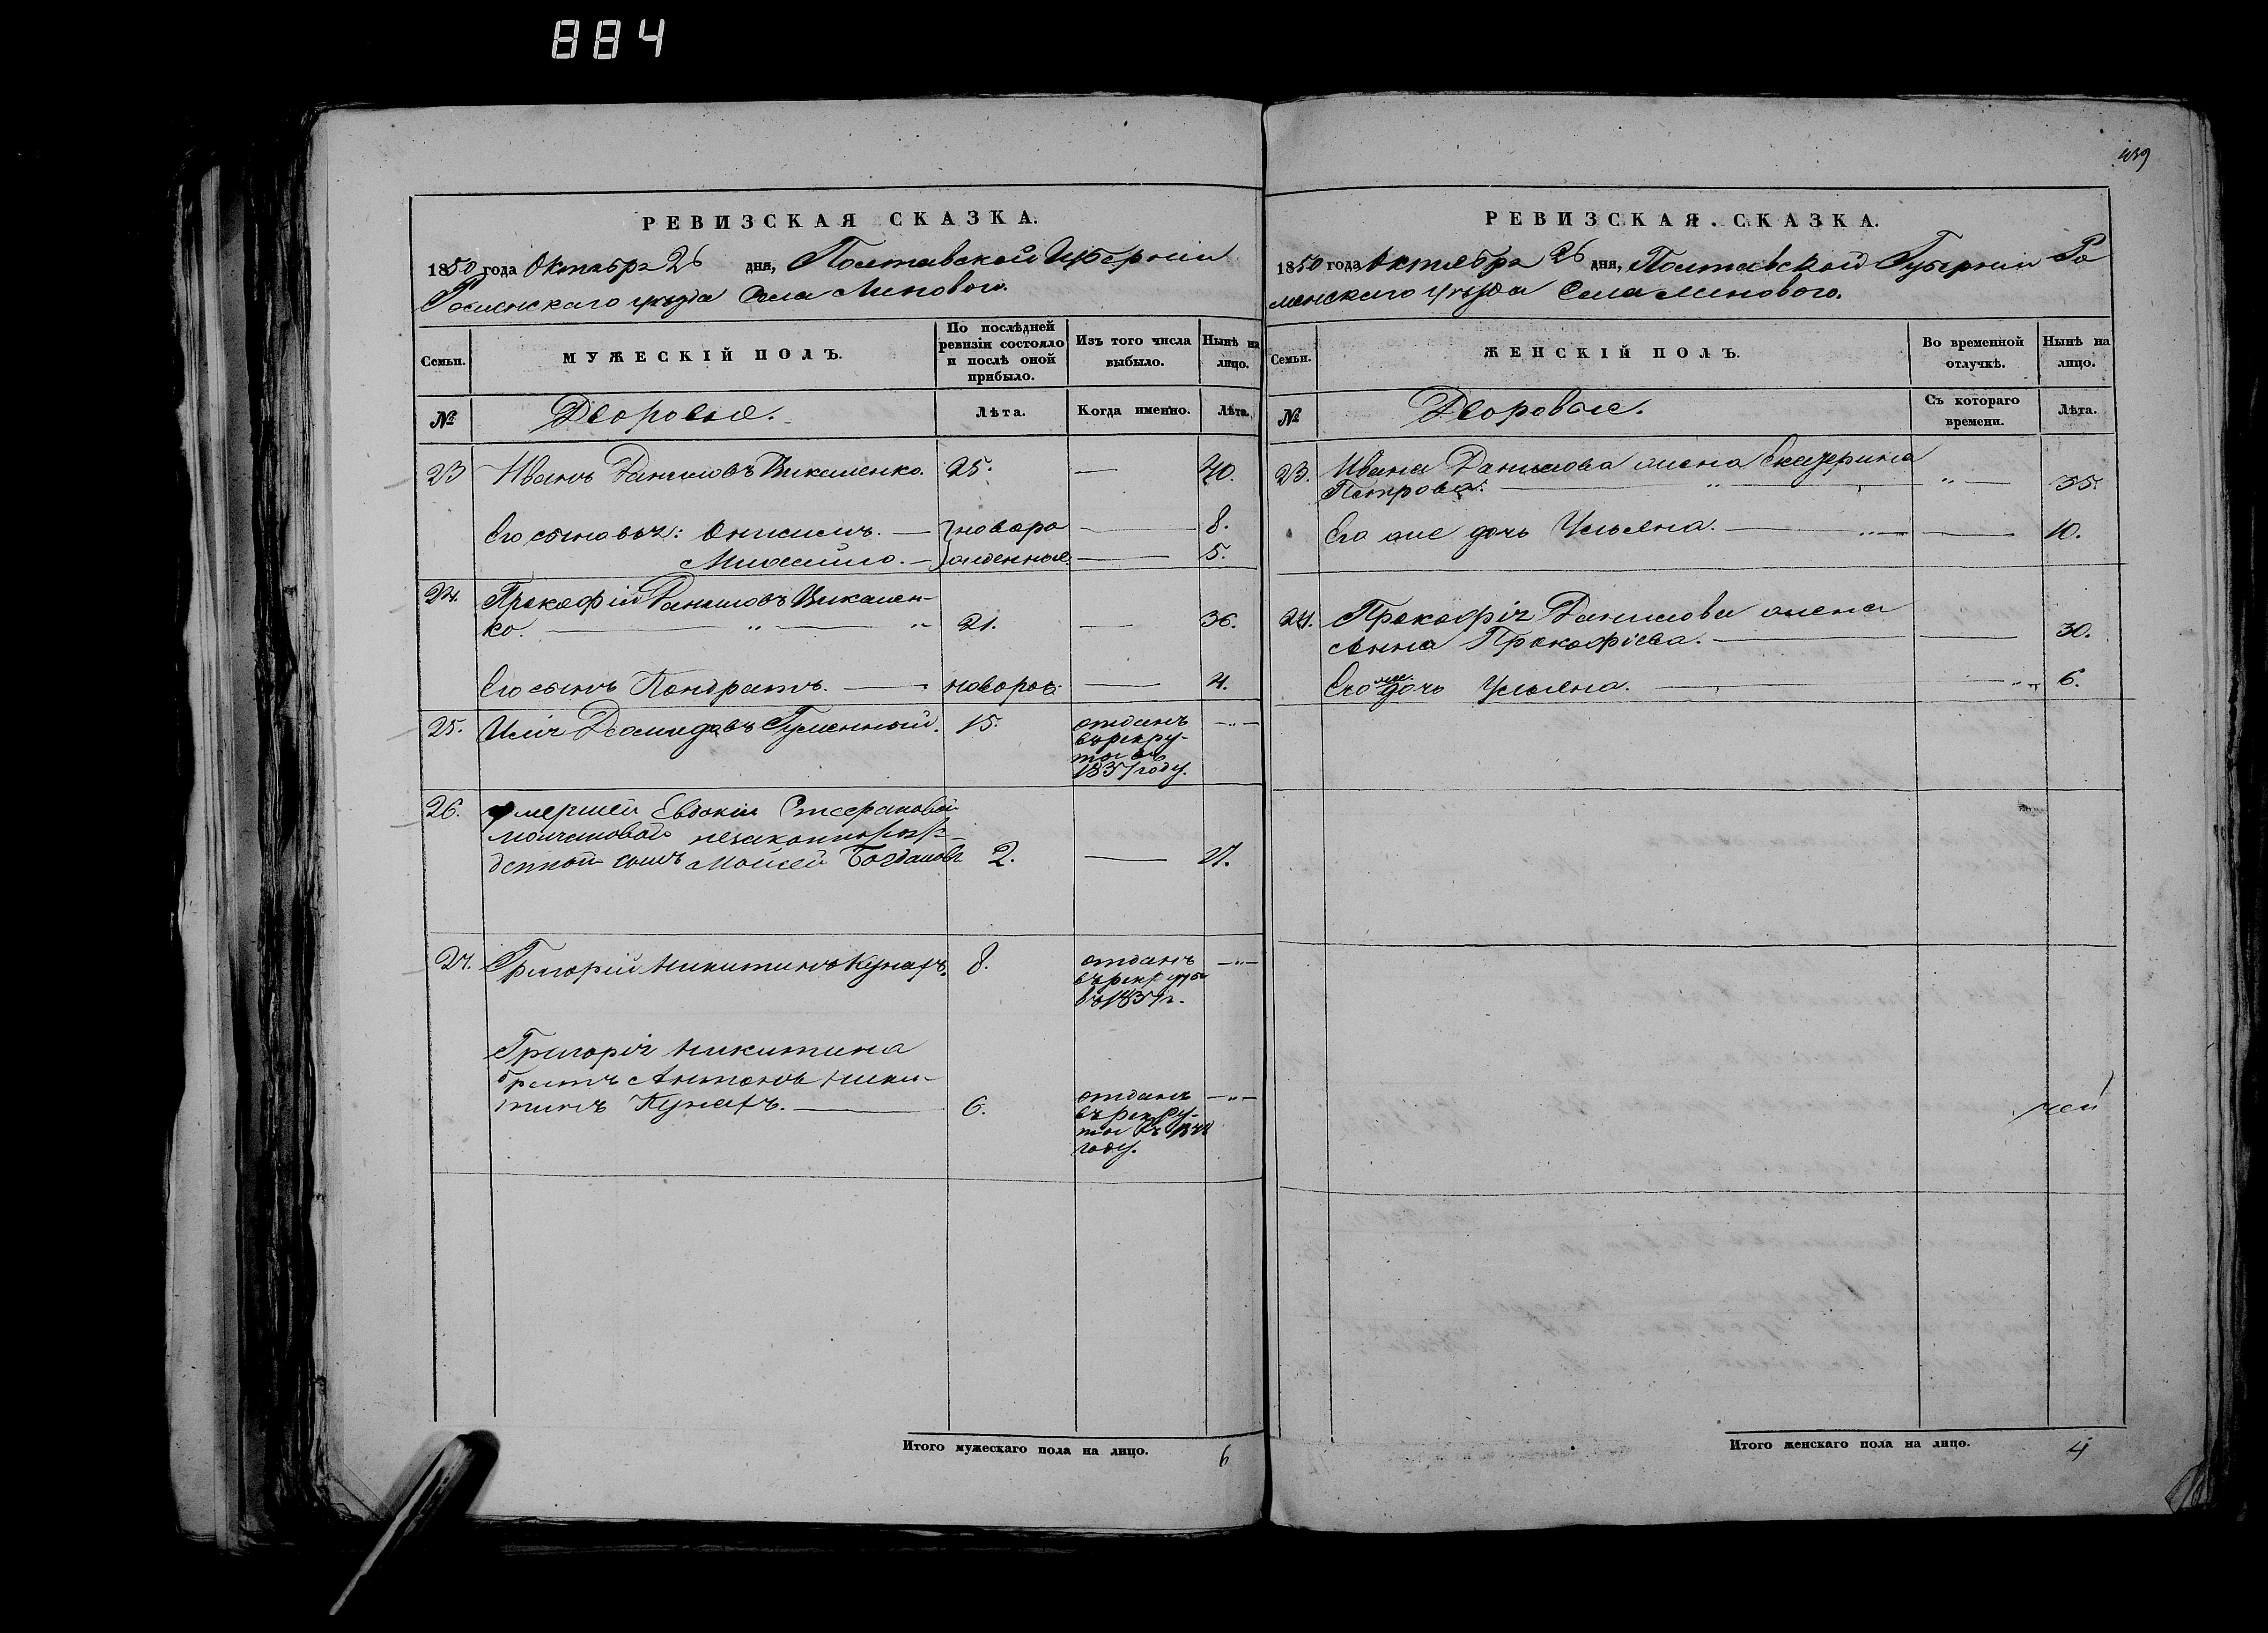 884
439
РЕВИЗСКАЯ СКАЗКА.
1850 года Октября 26 дня, Полтавской Губернии
Роменскаго уѣзда Села Липового.
Семьи.
МУЖЕСКІЙ ПОЛЪ.
По послѣдней
ревизіи состояло
и послѣ оной
прибыло.
Изъ того числа
выбыло.
Нынѣ на
лицо.
№
Дворовые.
Лѣта.
Когда именно.
Лѣта.
23 Иванъ Даниловъ 25. — 40.
Его сыновья: Онисимъ. — новоро — 8.
Михайло. — жденные. — 5.
24. Прокофій Даниловъ
ко. — " — " 21. — 36.
Его сынъ Кондратъ. — новорож. — 4.
25. Илія Демидовъ Гуменный. 15. отданъ —"—
въ рекру-
ты въ
1837 году.
26. умершей Евдокіи
незаконнорож-
денной сынъ Моисей Богдановъ 2. — 17.
27. Григорій Никитинъ Кунахъ. 8. отданъ —"—
въ рекруты
въ 1837 г.
Григорія Никитина
братъ Антонъ Ники-
тинъ Кунахъ. — 6. отданъ —"—
въ рекру-
ты въ
году.
Итого мужескаго пола на лицо. 6
РЕВИЗСКАЯ СКАЗКА.
1850 года Октября 26 дня, Полтавской Губернии Ро
менскаго уѣзда Села Липового.
Семьи.
ЖЕНСКІЙ ПОЛЪ.
Во временной
отлучкѣ.
Нынѣ на
лицо.
№
Дворовые.
Съ котораго
времени.
Лѣта.
23. Ивана Данилова жена Екатерина
Петрова. — " — " — 35.
Его же дочь Ульяна. — " — — 10.
24. Прокофія Данилова жена
Анна Прокофіева. — — 30.
Его же дочь Ульяна. — " — 6.
Итого женскаго пола на лицо. 4